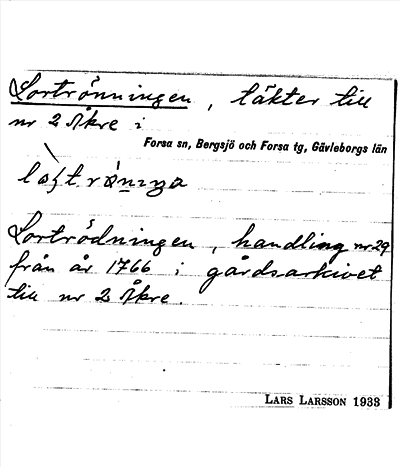 Lortrönningen, täkter till
nr 2 Åkre i
Forsa sn, Bergsjö och Forsa tg, Gävleborgs län
Lortrödningen, handling nr 29
från år 1766 i gårdsarkivet
till nr 2 Åkre.
LARS LARSSON 1933